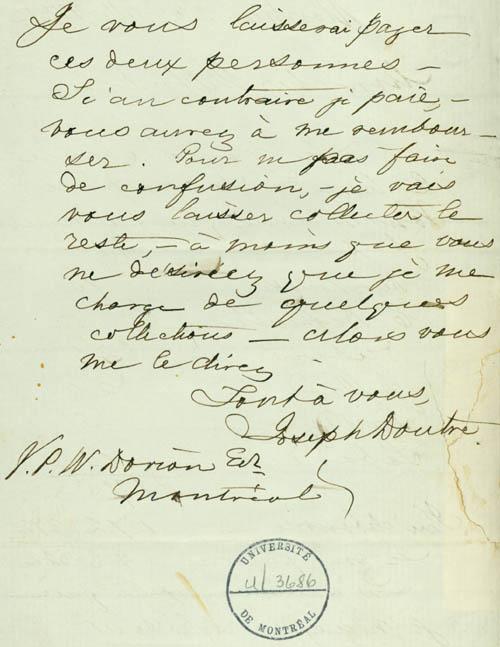 Je vous laisserai payer
ces deux personnes —
Si au contraire je paie, —
vous aurez à me rembour-
ser. Pour ne pas faire
de confusion, — je vais
vous laisser collecter le
reste, — à moins que vous
ne désiriez que je me
charge de quelques
collections — alors vous
me le direz
Tout à vous,
Joseph Doutre
V. P. W. Dorion Edr
Montréal
UNIVERSITÉ
U/3686
DE MONTRÉAL